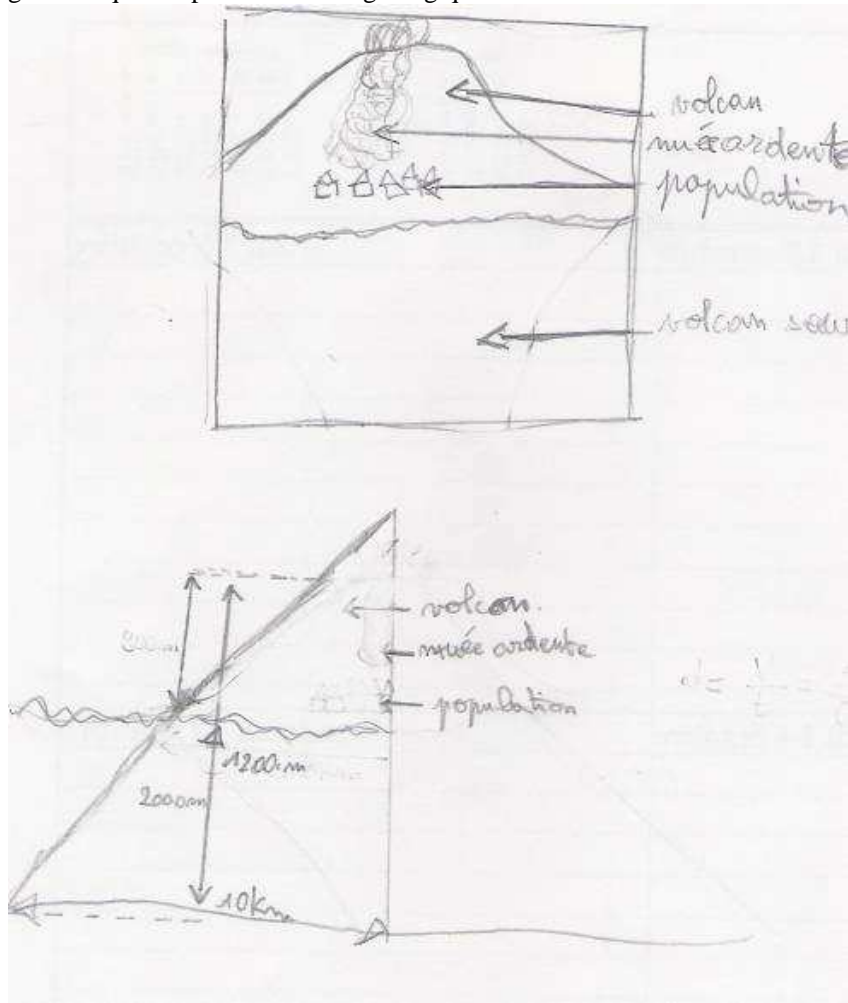 volcan
nuée ardente
population
volcan sou
volcan
nuée ardente
800m
population
1200m
2000m
10km